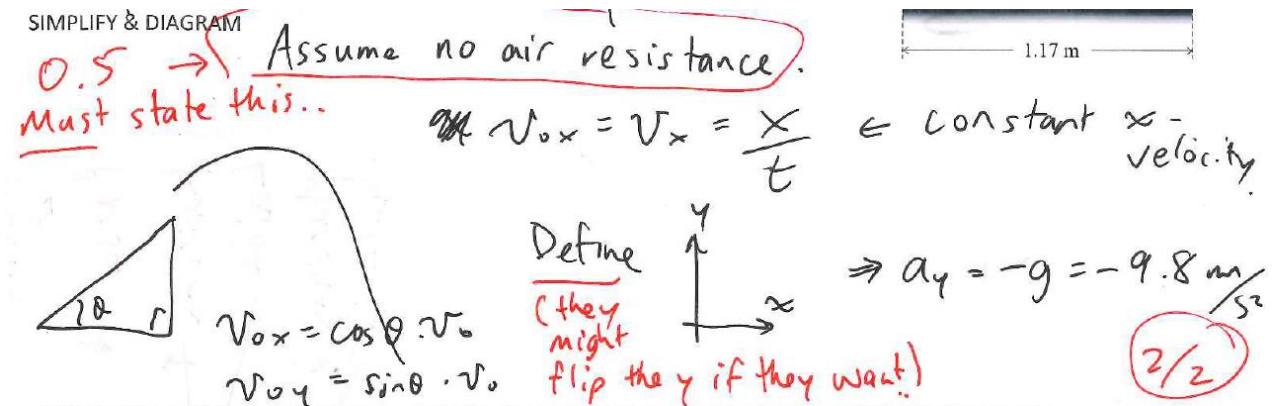 SIMPLIFY & DIAGRAM
0.5 → Assume no air resistance.
Must state this..
1.17 m
v₀ₓ = vₓ = x/t ← constant x-
velocity.
θ
v₀ₓ = cosθ · v₀
v₀y = sinθ · v₀
Define
(they
might
flip the y if they want!)
y
x
⇒ ay = -g = -9.8 m/s²
2/2